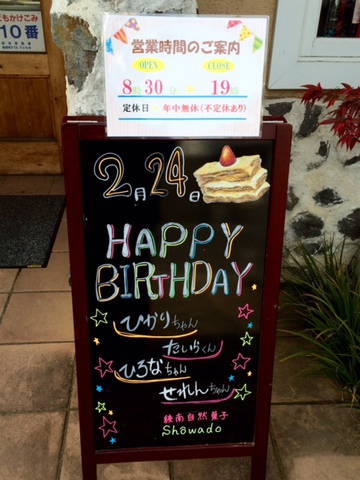 もかけこみ
110番
営業時間のご案内
OPEN
CLOSE
8時30分
～
19時
定休日
年中無休(不定休あり)
2月24日
HAPPY
BIRTHDAY
ひかりちゃん
たいらくん
ひろなちゃん
せれんちゃん
綾南自然菓子
Shōwado